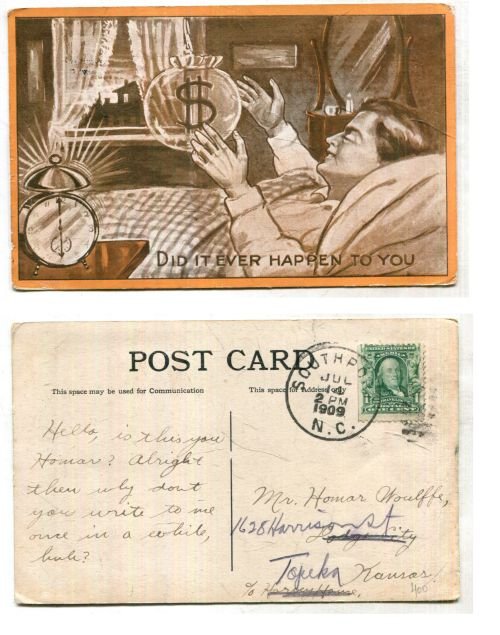 $
DID IT EVER HAPPEN TO YOU
POST CARD
This space may be used for Communication
This space for Address only
SOUTHPO
JUL
14
2 PM
1909
N.C.
Hello, is this you
Homar? Alright
then why don't
you write to me
once in a while,
huh?
Mr. Homar Woulffe,
1628 Harrison St
Dodge City
Topeka Kansas
c/o House,
400